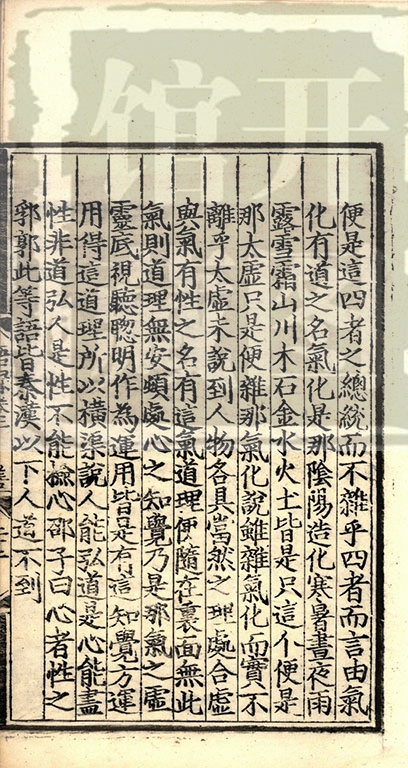 便是這四者之總統而不雜乎四者而言由氣
化有道之名氣化是那陰陽造化寒暑晝夜雨
露雪霜山川木石金水火土皆是只這个便是
那太虛只是便雜那氣化說雖雜氣化而實不
離乎太虛未說到人物各具當然之理處合虛
與氣有性之名有這氣道理便隨在裏面無此
氣則道理無安頓處心之知覺乃是那氣之虛
靈底視聽聦明作為運用皆是有這知覺方運
用得這道理所以橫渠說人能弘道是心能盡
性非道弘人是性不能撿心邵子曰心者性之
郛郭此等語皆秦漢以下人道不到